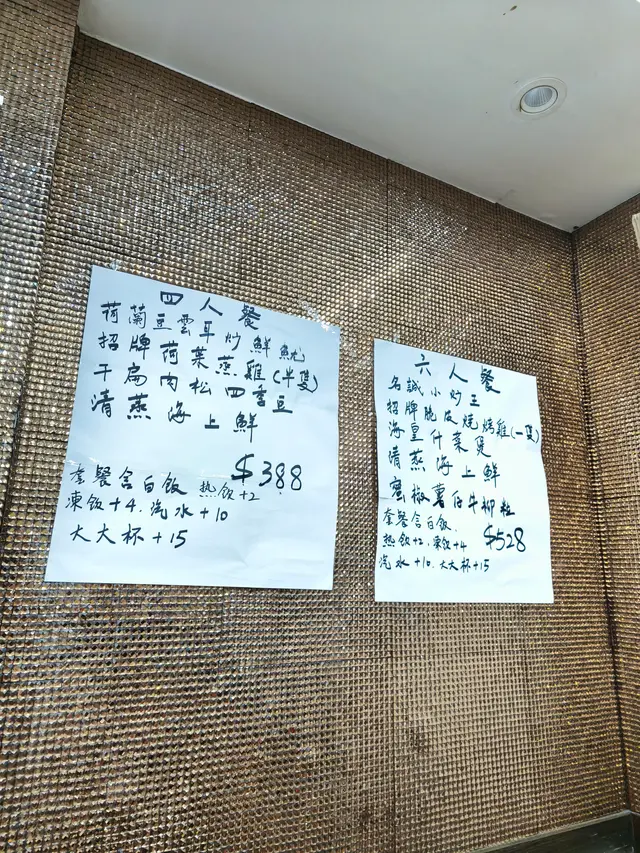 四人餐
荷蘭豆雲耳炒鮮魷
招牌荷葉蒸雞(半隻)
干扁肉松四季豆
清蒸海上鮮
$388
套餐含白飯 热飯+2
凍飯+4.汽水+10
大大杯+15
六人餐
名誠小炒王
招牌脆皮燒烤雞(一隻)
海皇什菜煲
清蒸海上鮮
蜜椒薯仔牛柳粒
套餐含白飯.
$528
热飯+2.凍飯+4
汽水+10.大大杯+15